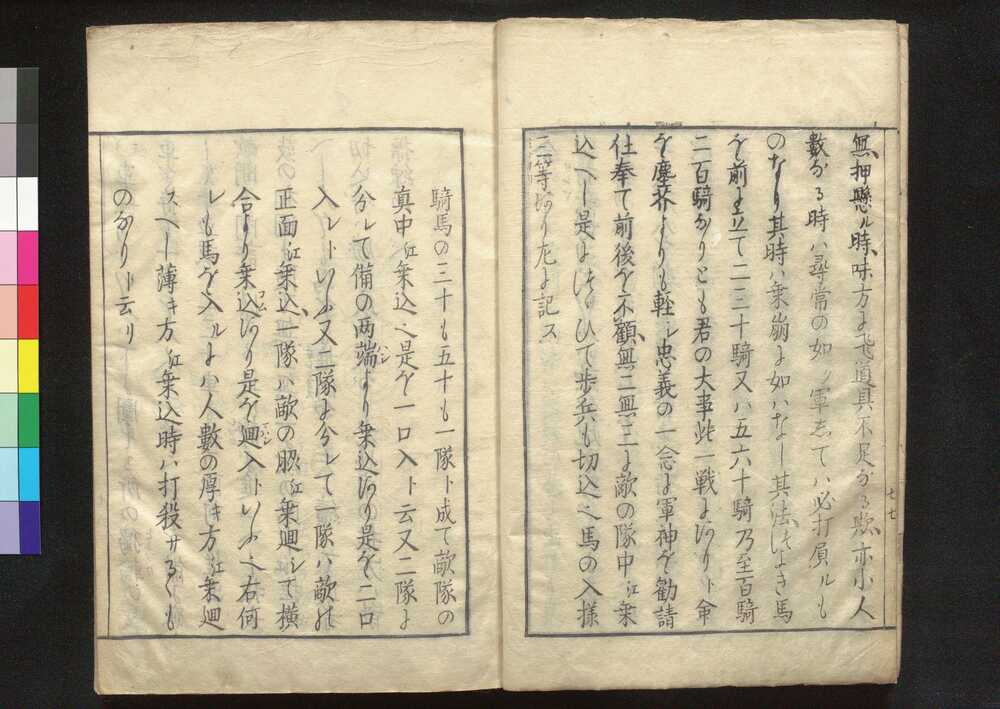 無押懸ル時味方に飛道具不足なる歟亦小人
數なる時ハ尋常の如ク軍立てハ必打屓ルも
のなり其時ハ乗崩に如ハなし其法つよき馬
を前に立て二三十騎又ハ五六十騎乃至百騎
二百騎なりとも君の大事此一戦にありト命
を塵芥よりも軽シ忠義の一念に軍神を勧請
仕奉て前後を不顧無二無三に敵の隊中江乗
込へし是につゝひて歩兵も切込へ馬の入様
三等あり左に記ス
七七
騎馬の三十も五十も一隊ト成て敵隊の
真中江乗込へ是を一口入ト云又二隊に
分レて備の両端ハシより乗込あり是を二口
入レトいふ又二隊に分レて一隊ハ敵の
正面江乗込、一隊ハ敵の脇江乗廻シて横
合より乗込あり是を廻入トいふ右何
レも馬を入ルよハ人數の厚キ方江乗廻
スへし薄キ方江乗込時ハ打殺サるゝも
のなりト云リ